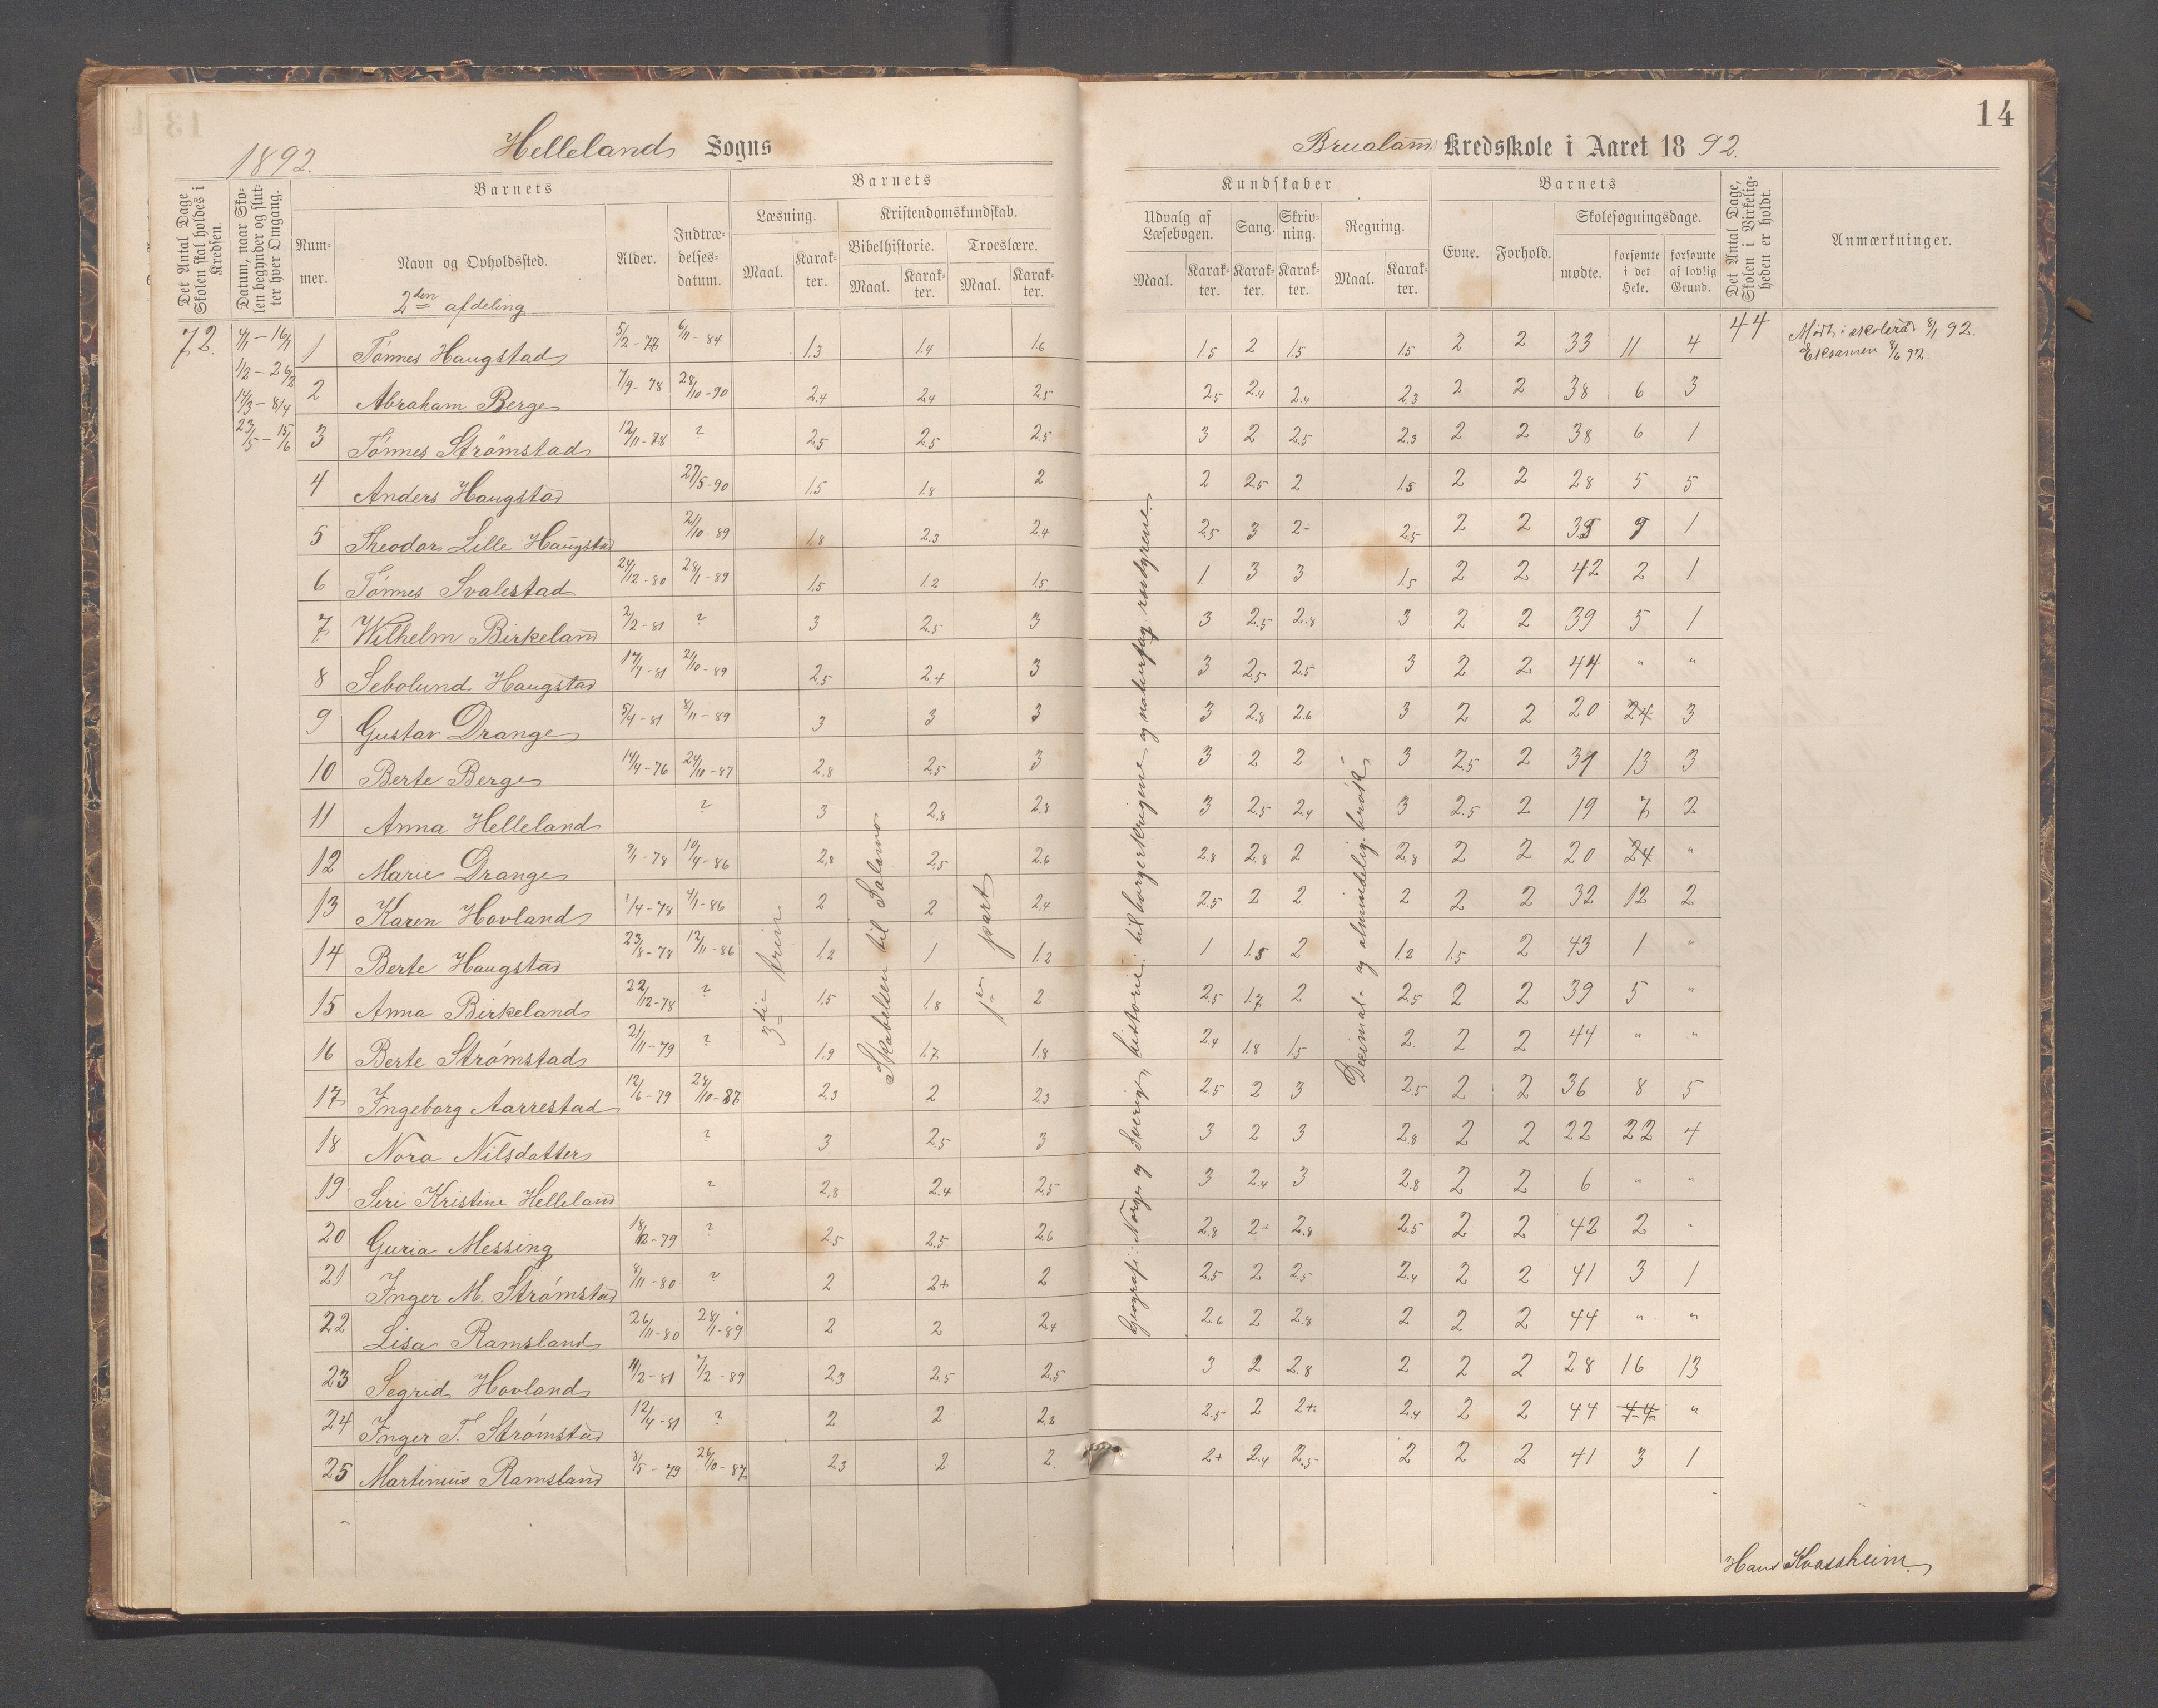 14
1892.
Hellelands Sogns
Brualand Kredsskole i Aaret 1892.
Det Antal Dage Skolen skal holdes i Kredsen.
Datum, naar Skolen begynder og slutter hver Omgang.
Barnets
Nummer.
Navn og Opholdssted.
2den afdeling
Alder.
Indtrædelsesdatum.
Barnets
Læsning.
Maal.
Karakter.
Kristendomskundskab.
Bibelhistorie.
Maal.
Karakter.
Troeslære.
Maal.
Karakter.
Kundskaber
Udvalg af Læsebogen.
Maal.
Karakter.
Sang.
Karakter.
Skrivning.
Karakter.
Regning.
Maal.
Karakter.
Barnets
Evne.
Forhold.
Skolesøgningsdage.
mødte.
forsømte i det Hele.
forsømte af lovlig Grund.
Det Antal Dage, Skolen i Virkeligheden er holdt.
Anmærkninger.
72.
4/1 – 16/1
1/2 – 26/2
14/3 – 8/4
23/5 – 15/6
44
Mødt i skoleraad 8/1 92.
Eksamen 8/6 92.
3die trin
Skabelsen til Salomo
1ste part
Geografi: Norge og Sverig, historie: til borgerkrigene og naturfag rovdyrene.
Decimal- og almindelig brøk
1 Tønnes Haugstad 5/2-77 6/11-84 1.3 1.4 1.6 1.5 2 1.5 1.5 2 2 33 11 4
2 Abraham Berge 7/9-78 28/10-90 2.4 2.4 2.5 2.5 2.4 2.4 2.3 2 2 38 6 3
3 Tønnes Strømstad 12/11-78 ? 2.5 2.5 2.5 3 2 2.5 2.3 2 2 38 6 1
4 Anders Haugstad 27/5-90 1.5 1.8 2 2 2.5 2 1.5 2 2 28 5 5
5 Theodor Lille Haugstad 21/10-89 1.8 2.3 2.4 2.5 3 2- 2.5 2 2 35 9 1
6 Tønnes Svalestad 24/12-80 28/1-89 1.5 1.2 1.5 1 3 3 1.5 2 2 42 2 1
7 Wilhelm Birkeland 2/2-81 ? 3 2.5 3 3 2.5 2.8 3 2 2 39 5 1
8 Sebolund Haugstad 17/7-81 21/10-89 2.5 2.4 3 3 2.5 2.5 3 2 2 44 " "
9 Gustav Drange 5/4-81 8/11-89 3 3 3 3 2.8 2.6 3 2 2 20 24 3
10 Berte Berge 14/4-76 24/10-87 2.8 2.5 3 3 2 2 3 2.5 2 31 13 3
11 Anna Helleland ? 3 2.8 2.8 3 2.5 2.4 3 2.5 2 19 7 2
12 Marie Drange 9/1-78 10/4-86 2.8 2.5 2.6 2.8 2.8 2 2.8 2 2 20 24 "
13 Karen Hovland 1/4-78 4/1-86 2 2 2.4 2.5 2 2 2 2 2 32 12 2
14 Berte Haugstad 23/8-78 12/11-86 1.2 1 1.2 1 1.5 2 1.2 1.5 2 43 1 "
15 Anna Birkeland 22/12-78 ? 1.5 1.8 2 2.5 1.7 2 2.5 2 2 39 5 "
16 Berte Strømstad 21/11-79 ? 1.9 1.7 1.8 2.4 1.8 1.5 2. 2 2 44 " "
17 Ingeborg Aarrestad 12/6-79 28/10-87 2.3 2 2.3 2.5 2 3 2.5 2 2 36 8 5
18 Nora Nilsdatter ? 3 2.5 3 3 2 3 2.8 2 2 22 22 4
19 Siri Kristine Helleland ? 2.8 2.4 2.5 3 2.4 3 2.8 2 2 6 " "
20 Guria Messing 18/12-79 ? 2.5 2.5 2.6 2.8 2- 2.8 2.5 2 2 42 2 "
21 Inger M. Strømstad 8/11-80 ? 2 2+ 2 2.5 2 2.5 2.4 2 2 41 3 1
22 Lisa Ramsland 26/11-80 28/1-89 2 2 2.4 2.6 2 2.8 2 2 2 44 " "
23 Segrid Hovland 11/2-81 7/2-89 2.3 2.5 2.5 3 2 2.8 2 2 2 28 16 13
24 Inger T. Strømstad 12/4-81 ? 2 2 2.8 2.5 2 2+ 2.4 2 2 44 44 "
25 Martinius Ramsland 8/5-79 26/10-87 2.3 2 2. 2+ 2.4 2.5 2 2 2 41 3 1
Hans Kvassheim.